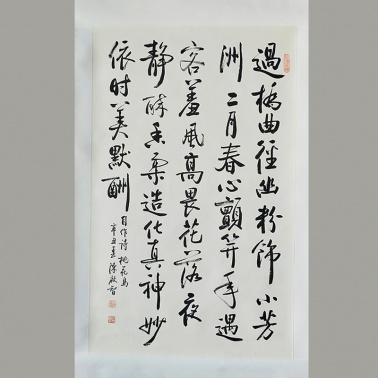 過橋曲徑幽粉飾小芳
洲二月春心顫笄年遇
客羞風高畏花落夜
静醉香柔造化真神妙
依时美默酬
自作诗桃花岛
辛丑